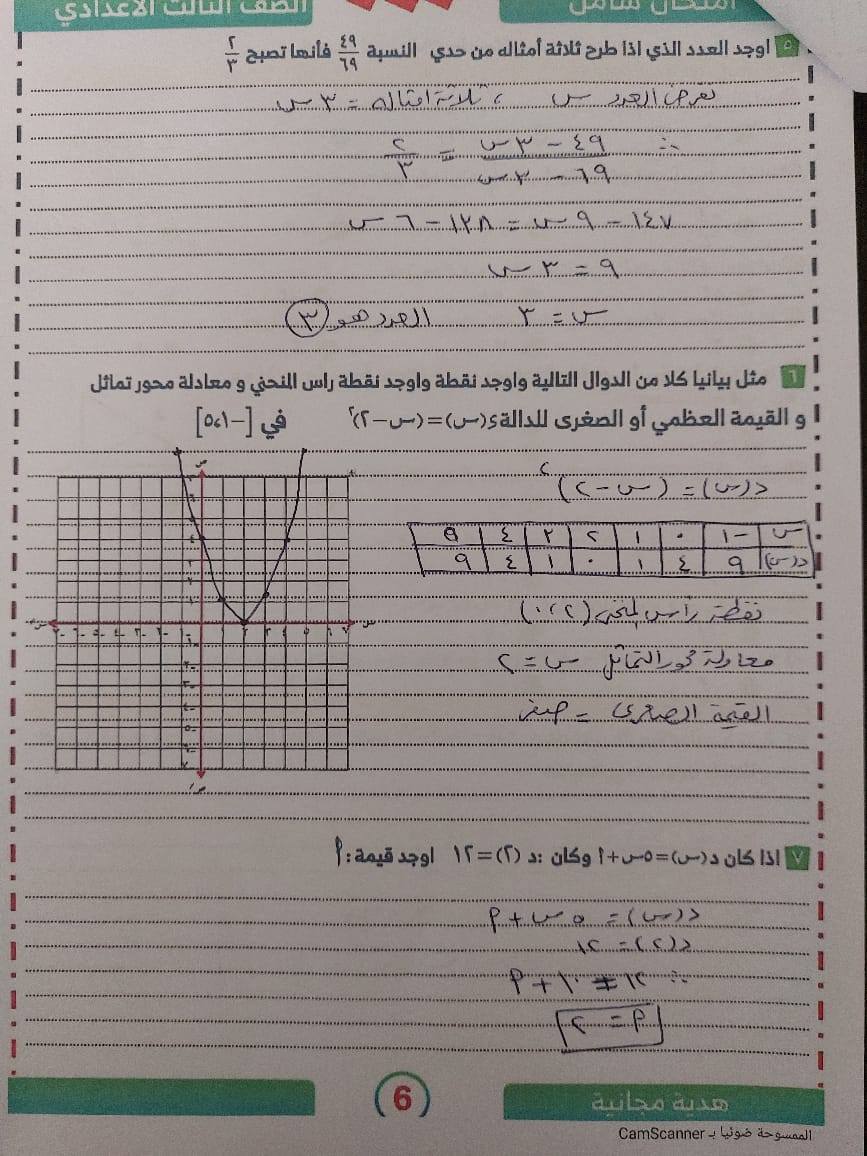 امتحان شامل
الصف الثالث الاعدادي
٥ اوجد العدد الذي اذا طرح ثلاثة أمثاله من حدي النسبة ٤٩/٦٩ فأنها تصبح ٢/٣
نفرض العدد س ، ثلاثة امثاله = ٣س
∴ (٤٩ - ٣س)/(٦٩ - ٣س) = ٢/٣
١٤٧ - ٩س = ١٣٨ - ٦س
٩ = ٣س
س = ٣ العدد هو ٣
٦ مثل بيانيا كلا من الدوال التالية واوجد نقطة واوجد نقطة راس المنحني و معادلة محور تماثل
و القيمة العظمي أو الصغرى للدالة د(س)=(س-٢)² في [-١،٥]
د(س) = (س - ٢)²
س -١ ٠ ١ ٢ ٣ ٤ ٥
د(س) ٩ ٤ ١ ٠ ١ ٤ ٩
نقطة رأس المنحنى (٢،٠)
معادلة محور التماثل س = ٢
القيمة الصغرى = صفر
٧ اذا كان د(س)=٥س+أ وكان :د (٢)=١٢ اوجد قيمة:أ
د(س) = ٥س + أ
د(٢) = ١٢
∴ ١٢ = ١٠ + أ
أ = ٢
6
هدية مجانية
الممسوحة ضوئيا بـ CamScanner